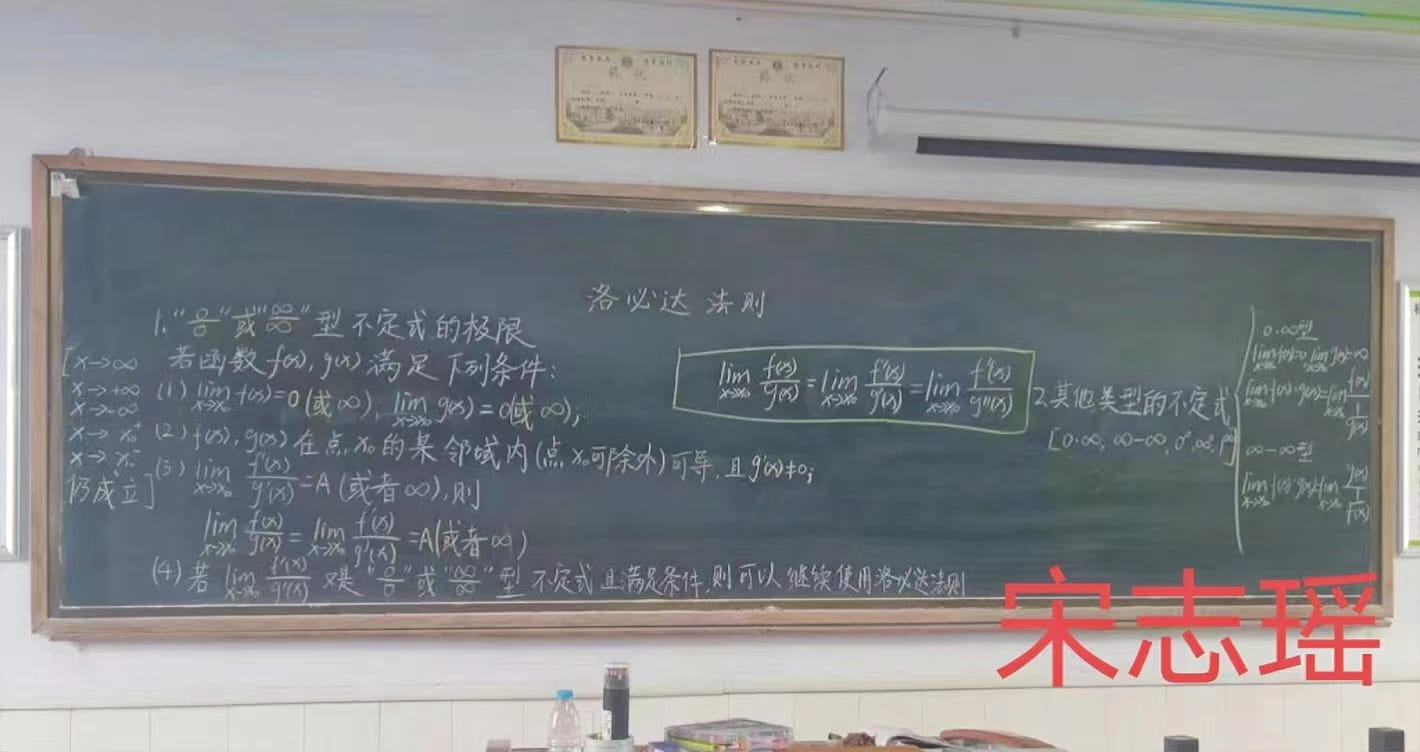 洛必达法则
1. "0/0"或"∞/∞"型不定式的极限
若函数f(x), g(x)满足下列条件:
(1) lim x→x₀ f(x)=0(或∞), lim x→x₀ g(x)=0(或∞);
(2) f(x), g(x)在点x₀的某邻域内(点x₀可除外)可导,且g'(x)≠0;
(3) lim x→x₀ f'(x)/g'(x)=A(或者∞),则
lim x→x₀ f(x)/g(x) = lim x→x₀ f'(x)/g'(x) =A(或者∞)
(4) 若 lim x→x₀ f'(x)/g'(x) 又是"0/0"或"∞/∞"型不定式且满足条件,则可以继续使用洛必达法则
[x→∞
x→+∞
x→-∞
x→x₀⁺
x→x₀⁻
仍成立]
lim x→x₀ f(x)/g(x) = lim x→x₀ f'(x)/g'(x) = lim x→x₀ f''(x)/g''(x)
2.其他类型的不定式
[0·∞, ∞-∞, 0⁰, ∞⁰, 1^∞]
0·∞型
lim x→x₀ f(x)=0 lim x→x₀ g(x)=∞
lim x→x₀ f(x)·g(x)=lim x→x₀ f(x)/(1/g(x))
∞-∞型
宋志瑶